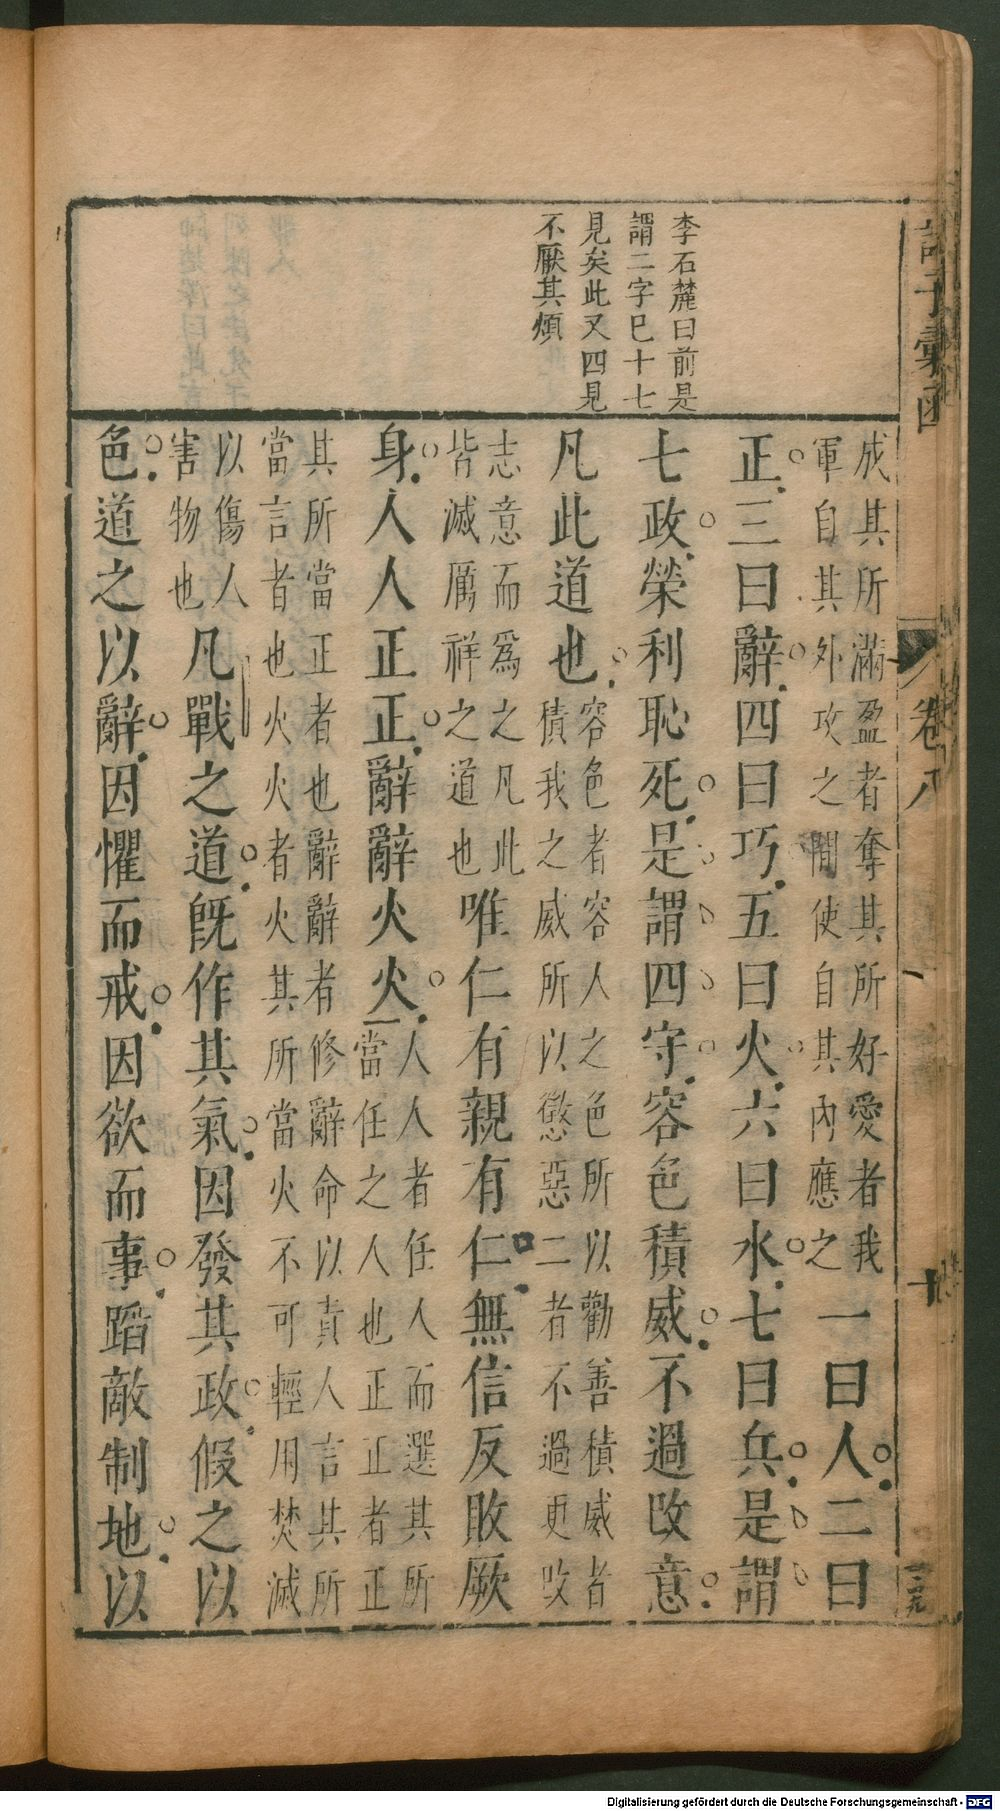 諸子彙函
卷八
十
一百九
李石麓曰前是
謂二字巳十七
見矣此又四見
不厭其煩
成其所滿盈者奪其所好愛者我
軍自其外攻之間使自其內應之
一曰人二曰
正三曰辭四曰巧五曰火六曰水七曰兵是謂
七政榮利恥死是謂四守容色積威不過改意
凡此道也
容色者容人之色所以勸善積威者
積我之威所以懲惡二者不過更改
志意而爲之凡此
皆滅厲祥之道也
唯仁有親有仁無信反敗厥
身人人正正辭辭火火
人人者任人而選其所
當任之人也正正者正
其所當正者也辭辭者修辭命以責人言其所
當言者也火火者火其所當火不可輕用焚滅
以傷人
害物也
凡戰之道既作其氣因發其政假之以
色道之以辭因懼而戒因欲而事蹈敵制地以
Digitalisierung gefördert durch die Deutsche Forschungsgemeinschaft - DFG